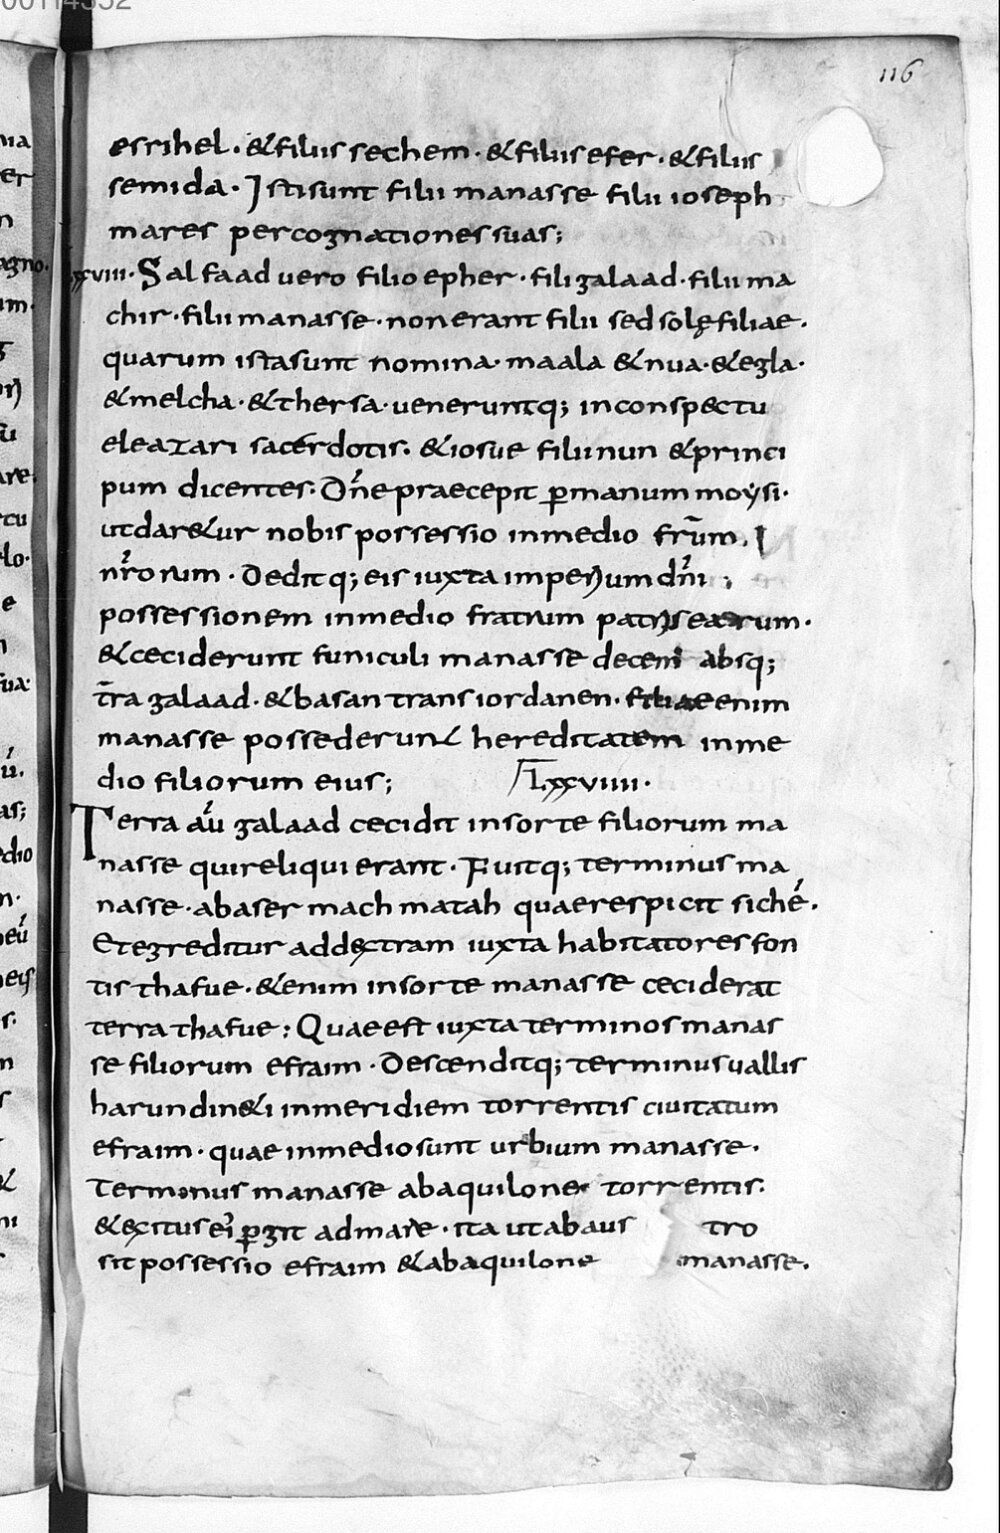 116
esrihel · & filius sechem · & filius efer · & filius
semida · Isti sunt filii manasse filii ioseph
mares per cognationes suas;
xxviii · Salfaad vero filio epher · fili galaad · filii ma
chir · filii manasse · non erant filii sed solę filiae ·
quarum ista sunt nomina · maala & nua · & egla ·
& melcha · & thersa · ueneruntq; in conspectu
eleazari sacerdotis · & iosue filii nun & princi
pum dicentes · Dn̄e praecepit ꝑ manum moysi ·
ut dar&ur nobis possessio in medio fr̄um ·
nr̄orum · Deditq; eis iuxta imperium dn̄i ;
possessionem in medio fratrum patris earum ·
& ceciderunt funiculi manasse decem absq;
t̄ra galaad · & basan trans iordanen · filiae enim
manasse possederunt hereditatem in me
dio filiorum eius; Lxxviiii ·
Terra aū galaad cecidit in sorte filiorum ma
nasse qui reliqui erant · Fuitq; terminus ma
nasse · ab aser mach matah quae respicit sichē ·
Et egreditur ad dextram iuxta habitatores fon
tis thafue · & enim in sorte manasse ceciderat
terra thafue : Quae est iuxta terminos manas
se filiorum efraim · Descenditq; terminus uallis
harundin&i in meridiem torrentis ciuitatum
efraim · quae in medio sunt urbium manasse ·
Terminus manasse ab aquilone torrentis ·
& exitus ei ꝑgit ad mare · ita ut ab aus tro
sit possessio efraim & ab aquilone manasse ·